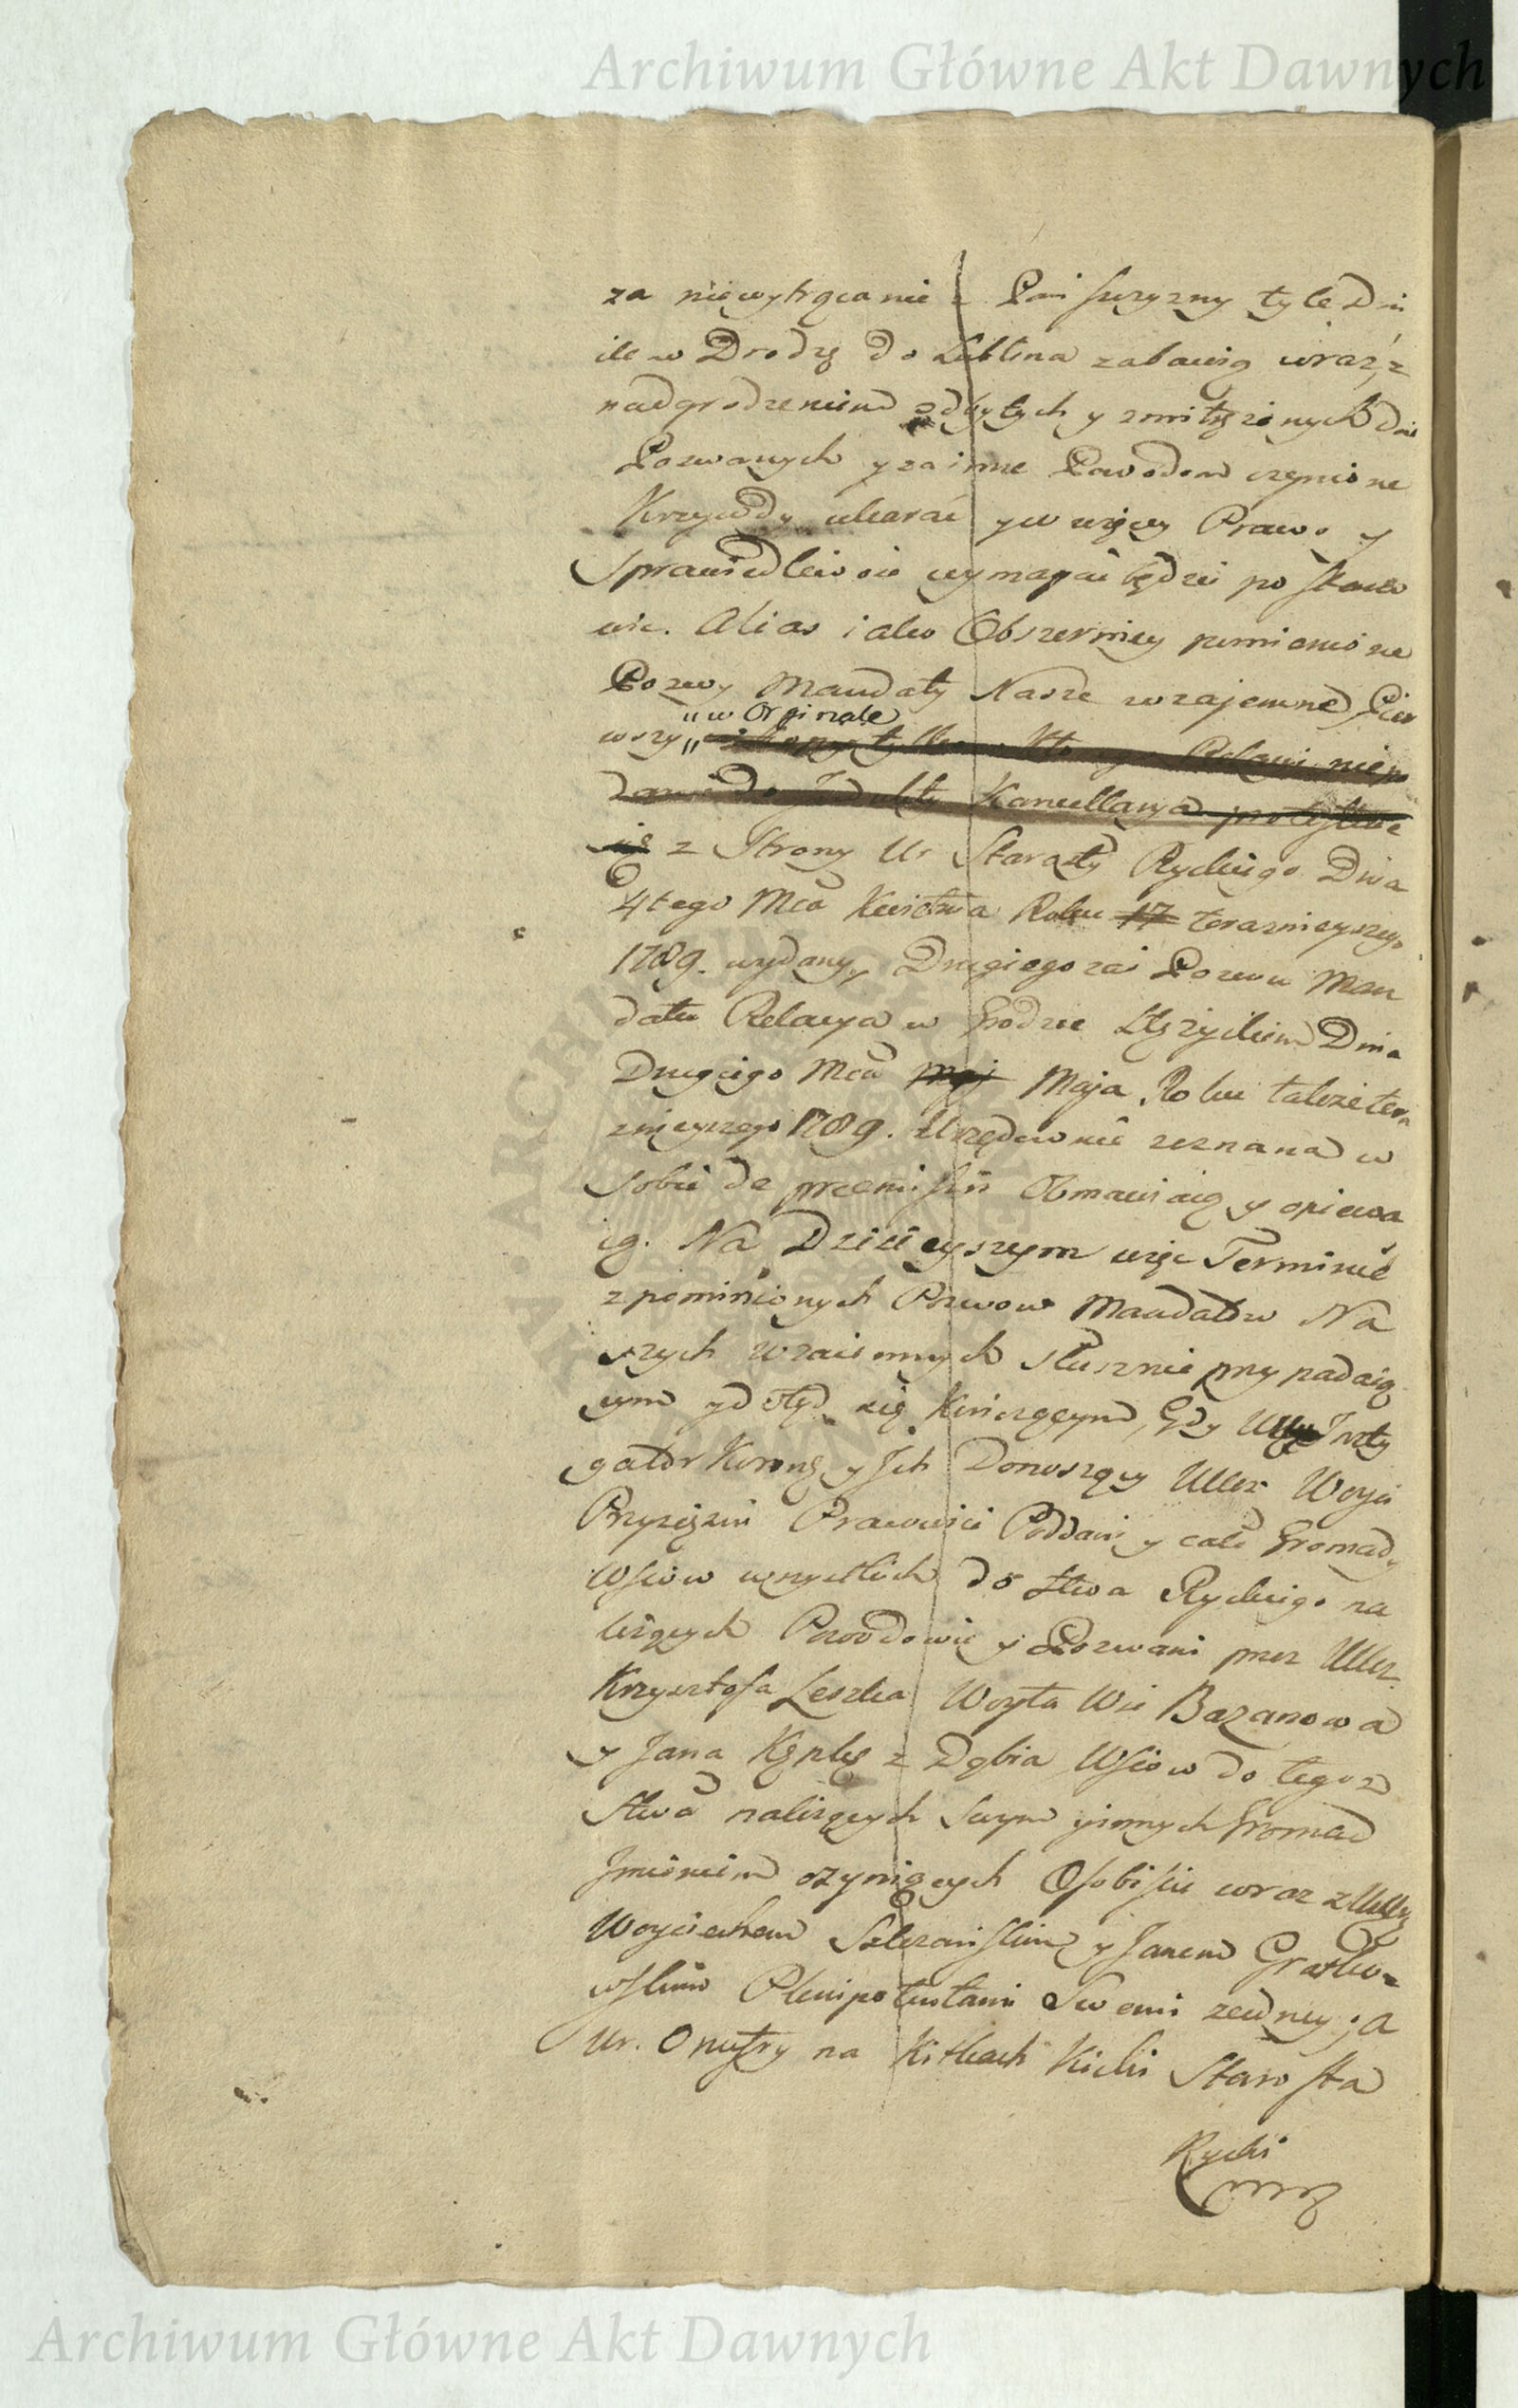 Archiwum Główne Akt Dawnych
za niewytrącanie z Panszczyzny tyle Dni
ile w Drodze do Lublina zabawią wraz z
nadgrodzeniem odbytych y zmitrężonych dni
Pozwanych y za inne Powodom czynione
Krzywdy ukarać y w więcy Prawo y
Sprawiedliwość wymagać będzie postano
wić. Alias iako Obszerniey pomienione
Pozwy Mandaty Nasze wzajemne Pier
wszy „w Orginale
Kancellarya
z Strony Ur Starosty Ryckiego Dnia
4tego Mca Kwietnia Roku 17 teraznieyszego
1789. wydany, Drugiego zaś Pozwu Man
datu Relacya w Grodzie Stężyckim Dnia
Drugiego Mca Maj Maja Roku także tera
znieyszego 1789. Urzędownie zeznana w
sobie de præmissis Obmawiaią y opiewa
ią. Na Dzisieyszym więc Terminie
z pomienionych Pozwow Mandatow Na
szych wzaiemnych słusznie przypadaią
cym y dotąd się Kończącym, Gdy Insty
gator Koronny y Ich Donoszący Uller Woyci
Przysiężni Pracowici Poddani y całe Gromady
Wsiow wszystkich do Stwa Ryckiego na
leżących Powodowie y Pozwani przez Uller.
Krzysztofa Leszka Woyta Wsi Bazanowa
y Jana Kępkę z Dąbia Wsiow do tegoz
Stwa należących Swym y innych Gromad
Imieniem czyniących Osobiście wraz z
Woyciechem y Janem
Plenipotentami Swemi zedney; a
Ur. Onufry na Kitkach Kicki Starosta
Rycki
Archiwum Główne Akt Dawnych